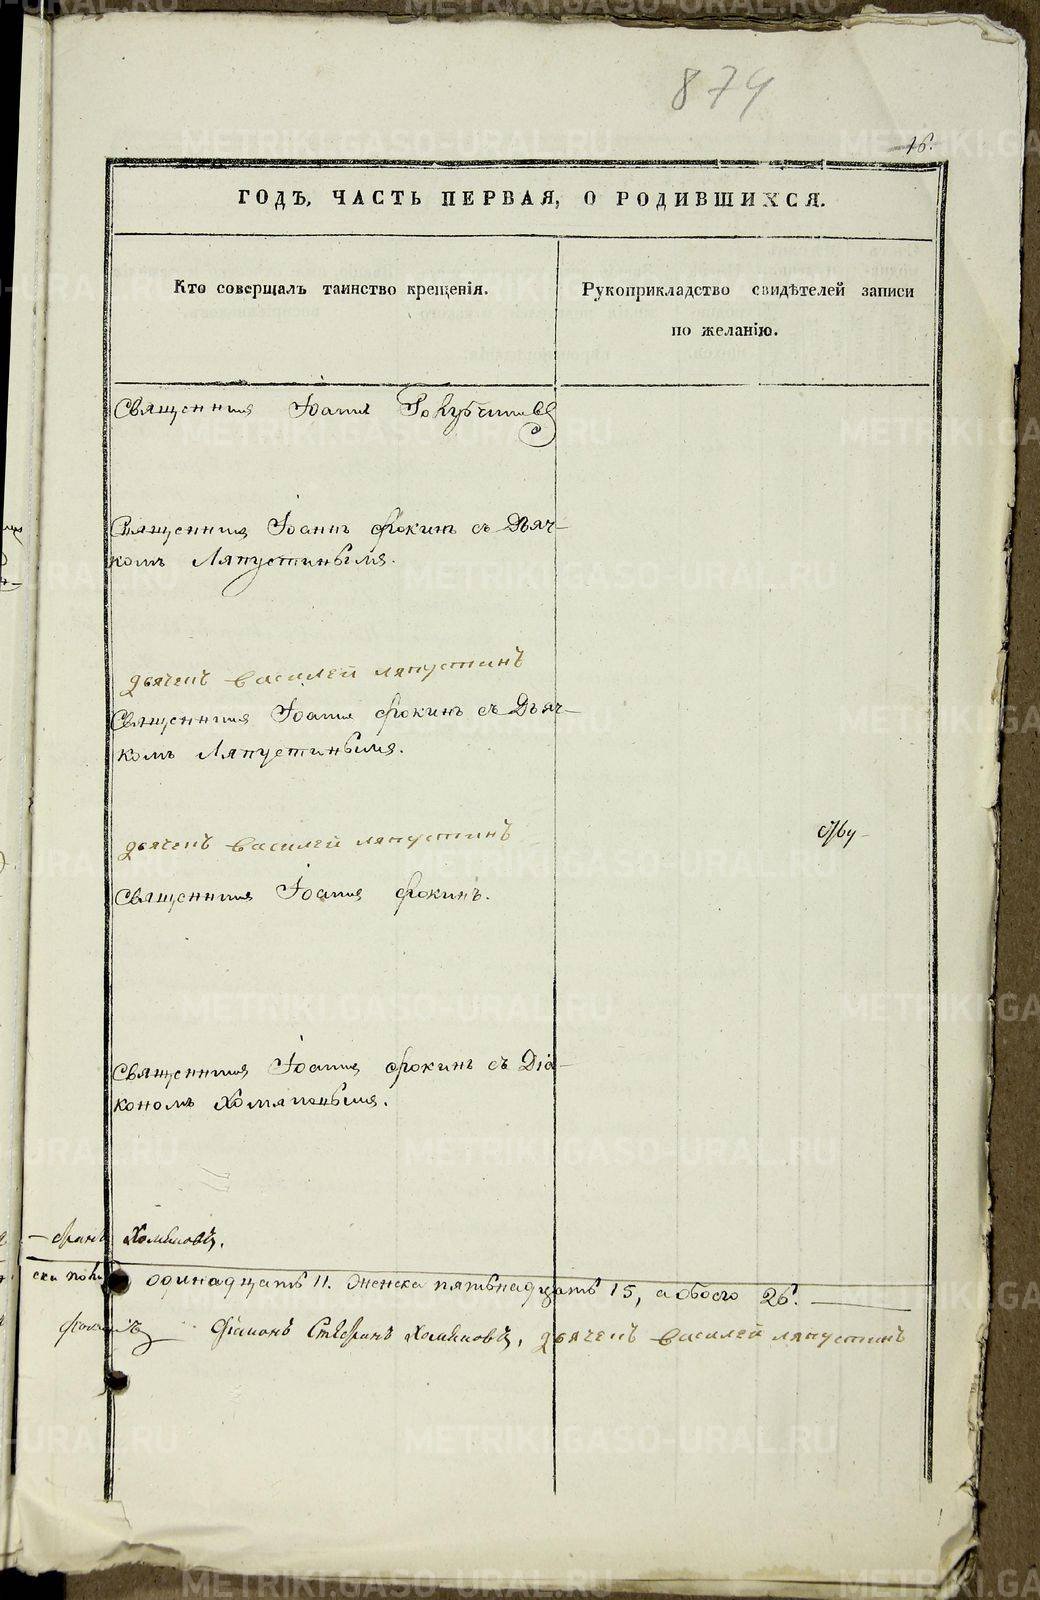 874
16.
ГОДЪ, ЧАСТЬ ПЕРВАЯ, О РОДИВШИХСЯ.
Кто совершалъ таинство крещенія.
Рукоприкладство свидѣтелей записи
по желанію.
Священникъ Іоаннъ
Священникъ Іоаннъ Фокинъ съ Дьяч-
комъ Ляпустинымъ.
дьячекъ василей ляпустинъ
Священникъ Іоаннъ Фокинъ съ Дьяч-
комъ Ляпустинымъ.
дьячекъ василей ляпустинъ
Священникъ Іоаннъ Фокинъ.
Священникъ Іоаннъ Фокинъ съ Діа-
кономъ
одинадцать 11. Женска пятьнадцать 15, а обоего 26.
Діаконъ Стефанъ дьячекъ василей ляпустинъ
METRIKI.GASO-URAL.RU